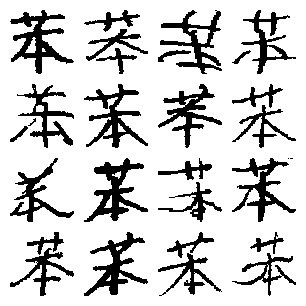 苯苯苯苯
苯苯苯苯
苯苯苯苯
苯苯苯苯